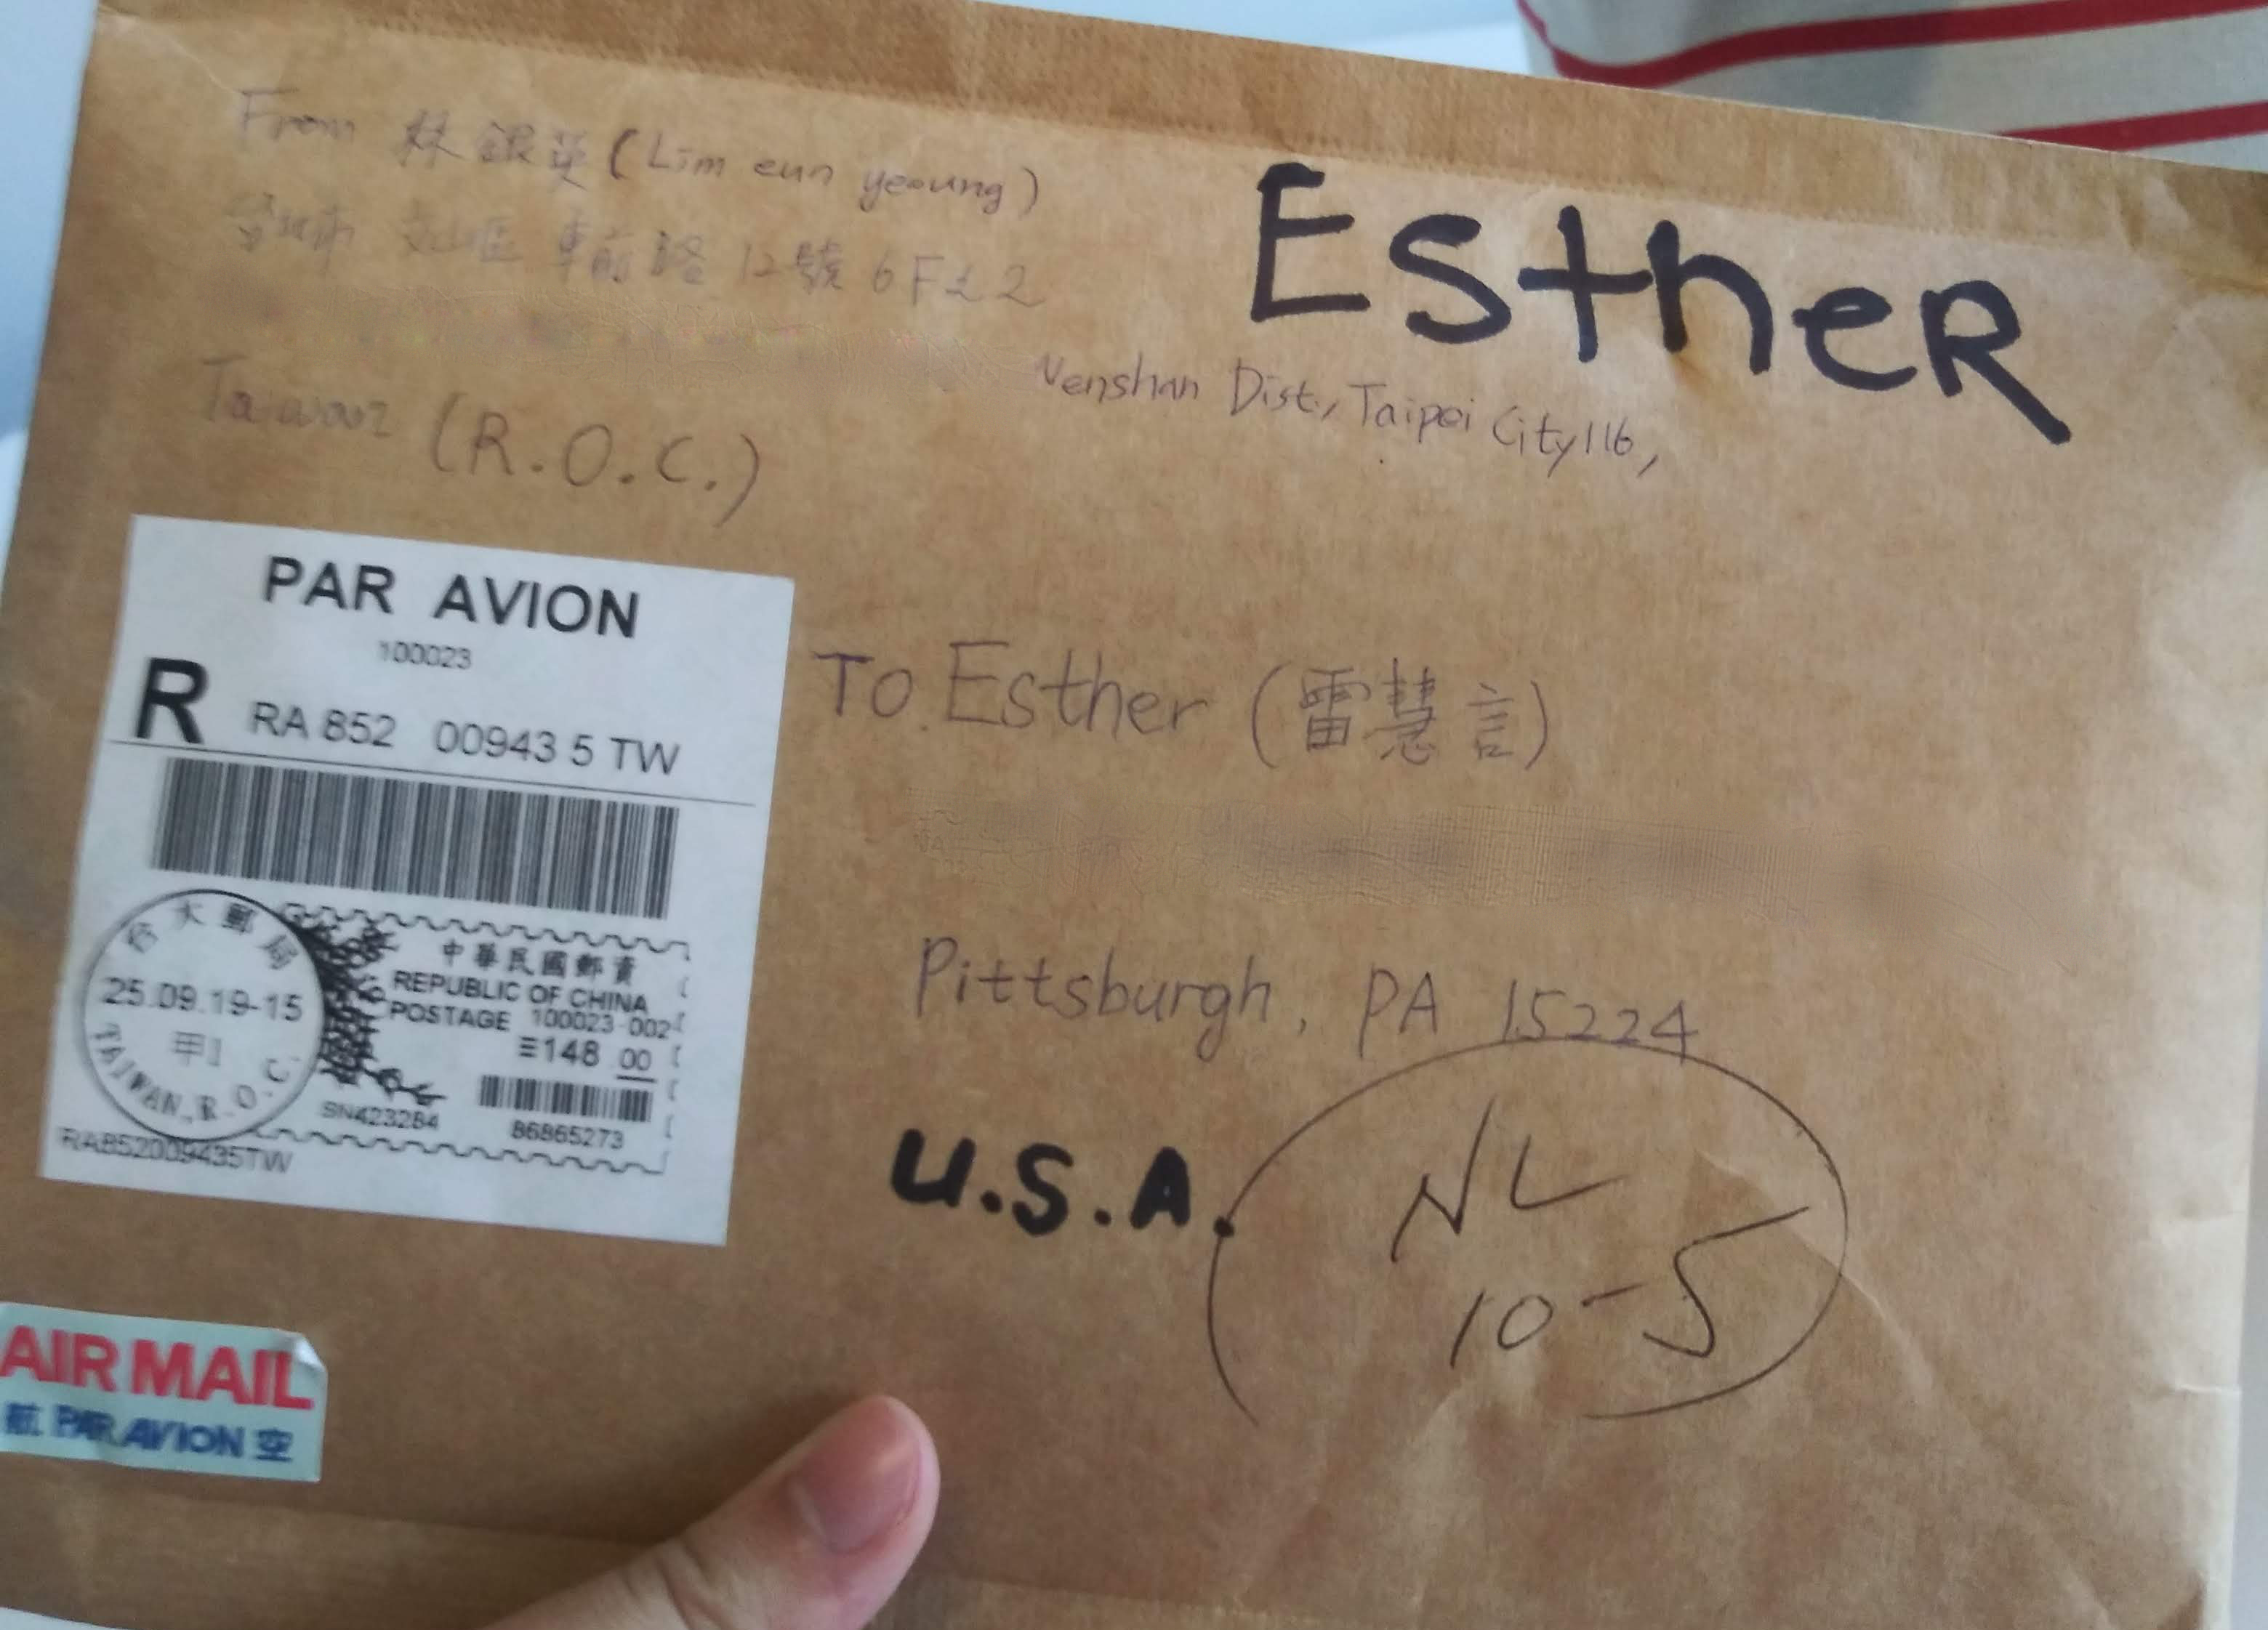 From 林銀英 (Lim eun yeoung)
台北市 文山區 車前路 12號 6F之2
EstheR
Wenshan Dist., Taipei City 116,
Taiwan (R.O.C.)
PAR AVION
100023
R RA 852 00943 5 TW
To. Esther (雷慧言)
台大郵局
25.09.19-15
甲1
TAIWAN, R.O.C.
中華民國郵資
REPUBLIC OF CHINA
POSTAGE 100023 002
148 00
SN423284
86865273
RA852009435TW
Pittsburgh, PA 15224
U.S.A.
NL
10-5
AIR MAIL
航 PAR AVION 空